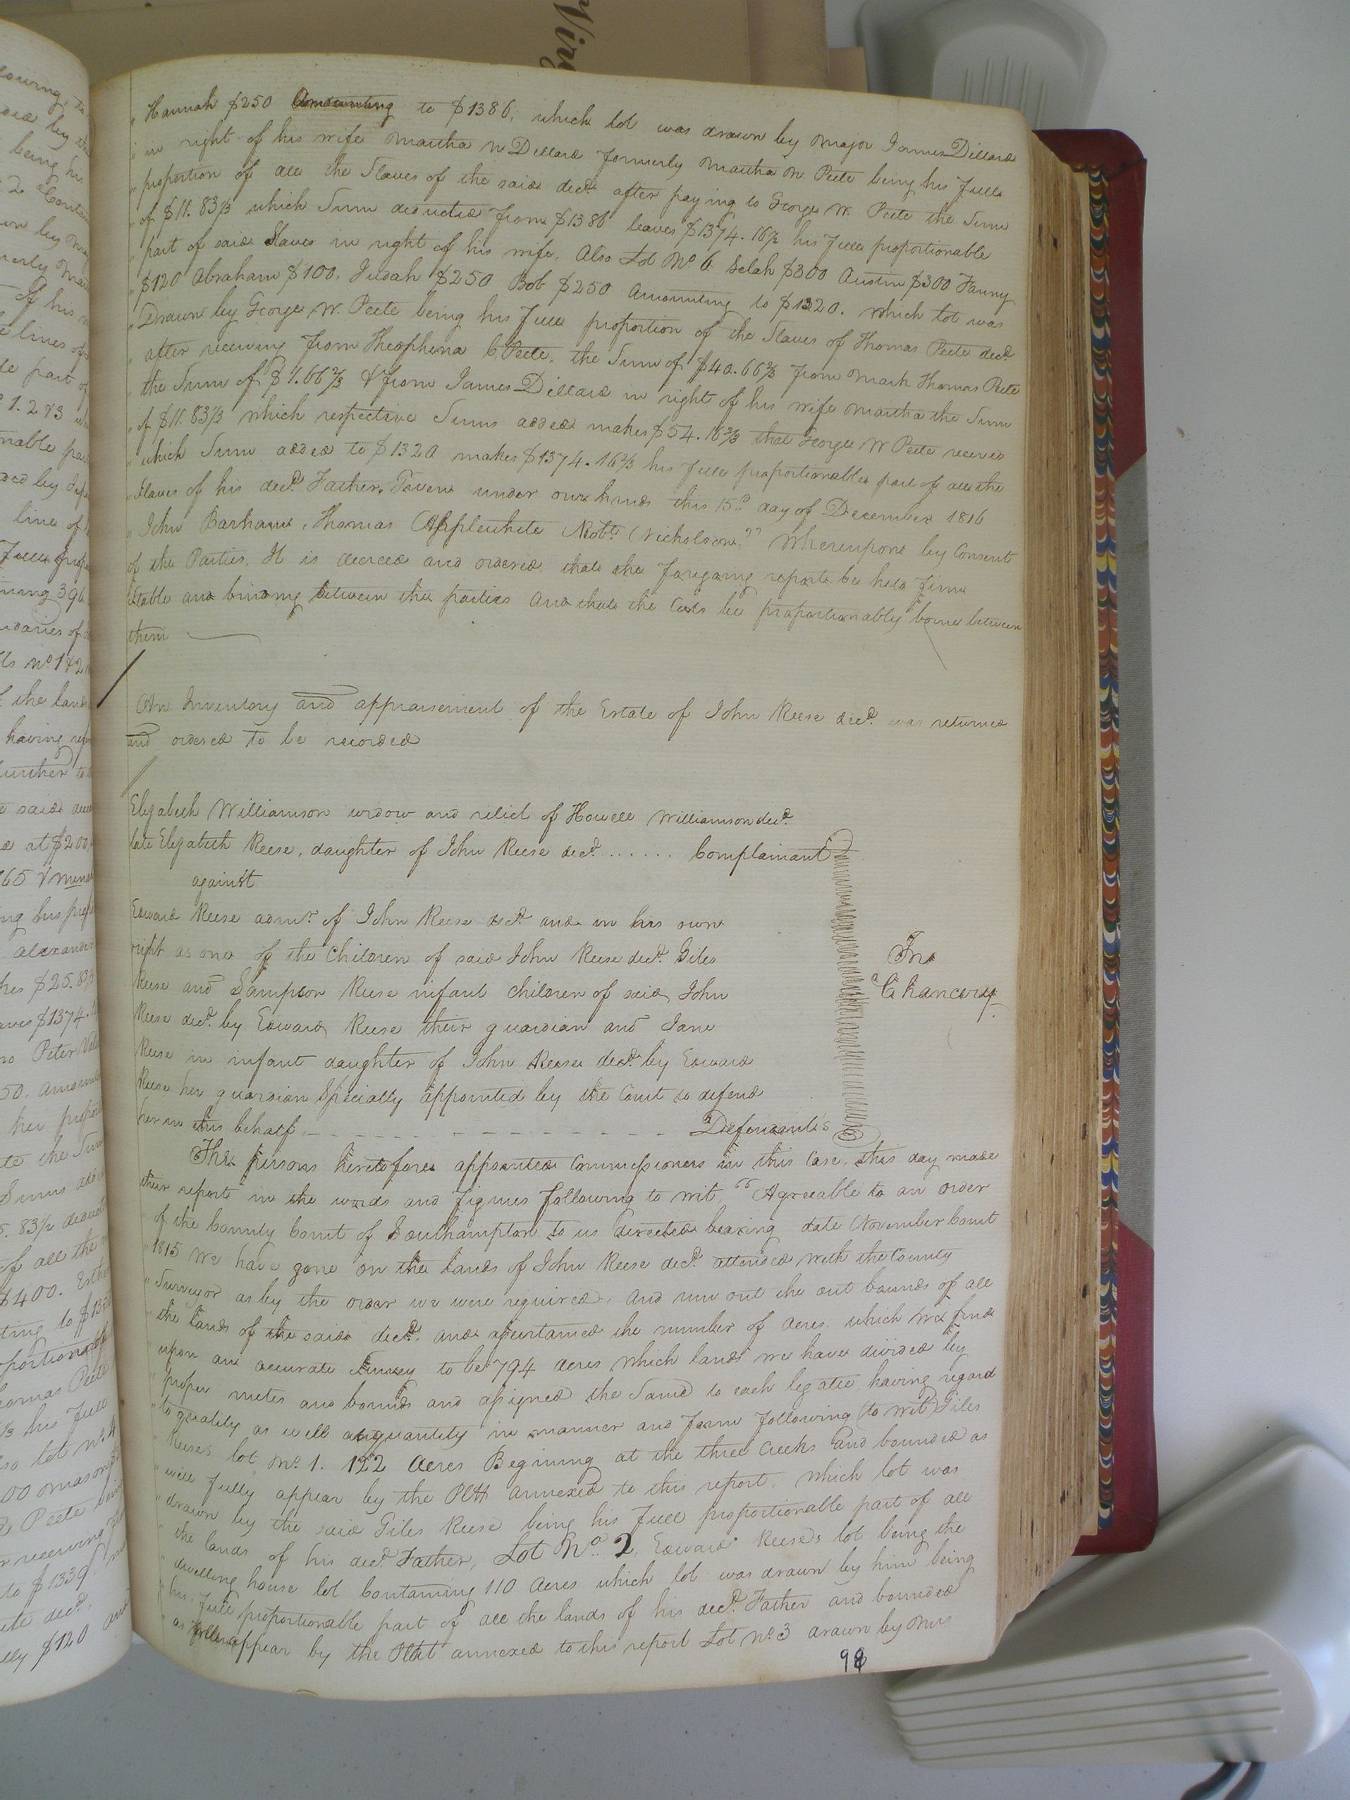 Hannah $250 Amounting to $1386, which lot was drawn by Major James Dillard
in right of his wife Martha N Dillard formerly Martha N. Peete being his full
proportion of all the Slaves of the said decd. after paying to George W. Peete the Sum
of $11.83⅓ which Sum deducted from $1386 leaves $1374.16⅔ his full proportionable
part of said Slaves in right of his wife. Also Lot No. 6. Selah $300 Austin $300 Fanny
$120 Abraham $100. Judah $250 Bob $250 Amounting to $1320. which lot was
Drawn by George W. Peete being his full proportion of the Slaves of Thomas Peete decd.
after receiving from Theophena C. Peete, the Sum of $40.66⅔ from Mark Thomas Peete
the Sum of $1.66⅔ & from James Dillard in right of his wife Martha the Sum
of $11.83⅓ which respective Sums added makes $54.16⅔ that George W Peete received
which Sum added to $1320 makes $1374.16⅔ his full proportionable part of all the
Slaves of his decd. Father. Given under our hands this 15th. day of December 1816
John Barham, Thomas Applewhite Robt. Nicholson." Whereupon by Consent
of the Parties, It is decreed and ordered that the foregoing report be held firm
stable and binding between the parties and that the Costs be proportionably borne between
them
An Inventory and appraisement of the Estate of John Reese decd. was returned
and ordered to be recorded
Elizabeth Williamson widow and relict of Howell Williamson decd.
late Elizabeth Reese, daughter of John Reese decd. ...... Complainant
against
Edward Reese admr. of John Reese decd. and in his own
right as one of the Children of said John Reese decd. Giles
Reese and Sampson Reese infant children of said John
Reese decd. by Edward Reese their guardian and Jane
Reese in infant daughter of John Reese decd. by Edward
Reese her guardian Specially appointed by the Court to defend
her in this behalf Defendants
In
Chancery
The persons heretofore appointed Commissioners in this Case, this day made
their report in the words and figures following to wit, "Agreeable to an order
of the County Court of Southampton to us directed bearing date November Court
1815 We have gone on the lands of John Reese decd. attended with the County
Surveyor as by the order we were required, and run out the out bounds of all
the lands of the said decd. and ascertained the number of acres which we find
upon an accurate Survey to be 794 acres which lands we have divided by
proper metes and bounds and assigned the Same to each legatee having regard
to quality as well as quantity in manner and form following (to wit) Giles
Reeses lot No. 1. 122 Acres Begining at the three Creeks and bounded as
will fully appear by the Platt annexed to this report, which lot was
drawn by the said Giles Reese being his full proportionable part of all
the lands of his decd. Father, Lot No. 2. Edward Reeses lot being the
dwelling house lot Containing 110 Acres which lot was drawn by him being
his full proportionable part of all the lands of his decd. Father and bounded
as appear by the Platt annexed to this report Lot No. 3 drawn by Mrs
98